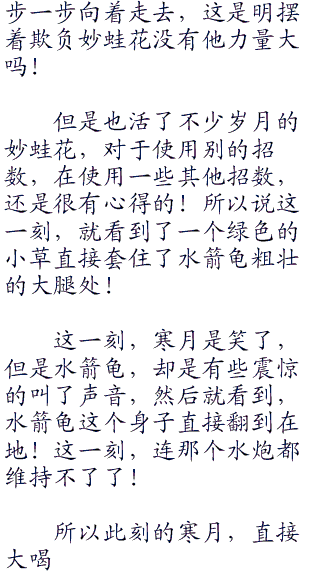 步一步向着走去，这是明摆
着欺负妙蛙花没有他力量大
吗！
但是也活了不少岁月的
妙蛙花，对于使用别的招
数，在使用一些其他招数，
还是很有心得的！所以说这
一刻，就看到了一个绿色的
小草直接套住了水箭龟粗壮
的大腿处！
这一刻，寒月是笑了，
但是水箭龟，却是有些震惊
的叫了声音，然后就看到，
水箭龟这个身子直接翻到在
地！这一刻，连那个水炮都
维持不了了！
所以此刻的寒月，直接
大喝